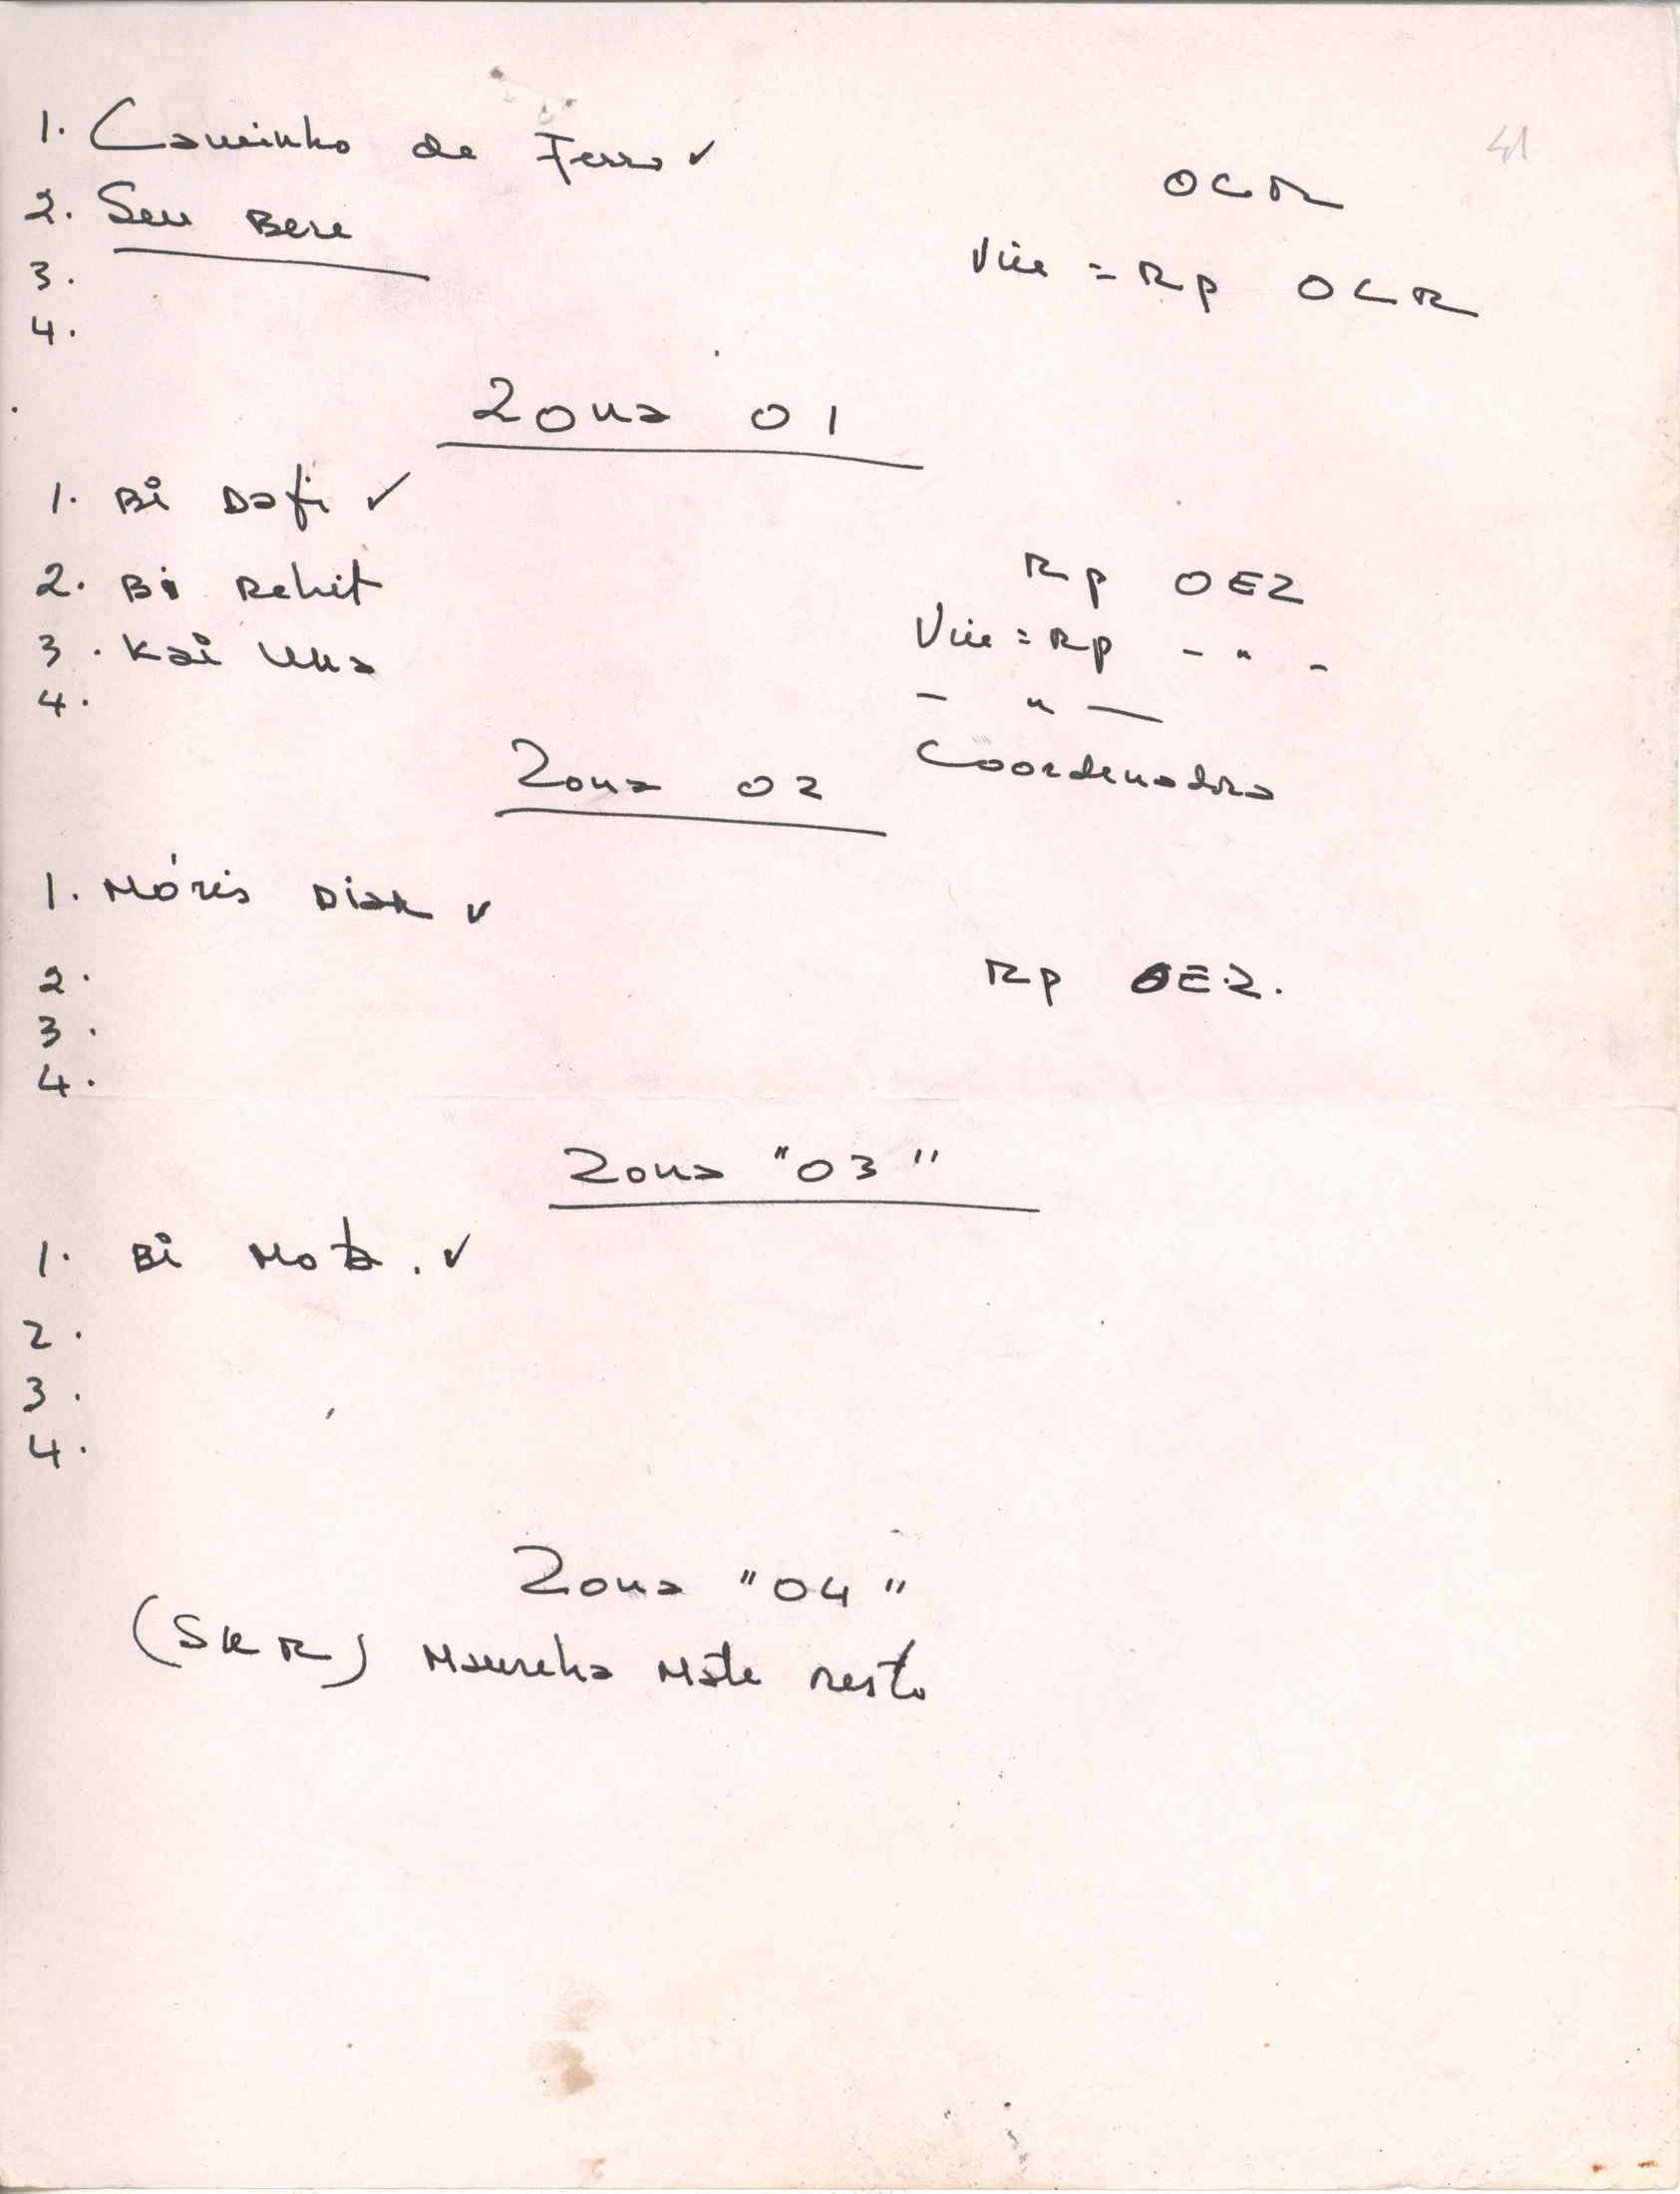 41
1. Caminho de Ferro ✓
OCR
2. Seu Bere
Vice = Rp OCR
3.
4.
Zona 01
1. Bi Dafi ✓
Rp OEZ
2. Bi Rehit
Vice = Rp - " -
3. Kai Una
- " -
4.
Coordenadora
Zona 02
1. Móris Diak ✓
Rp OEZ.
2.
3.
4.
Zona "03"
1. Bi Mota. ✓
2.
3.
4.
Zona "04"
(SKR) Maureha Mate resto